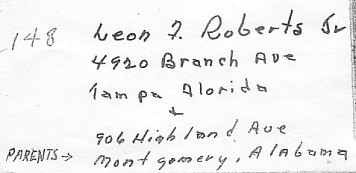 148 Leon F. Roberts Jr
4920 Branch Ave
Tampa Florida
+
906 Highland Ave
PARENTS → Montgomery, Alabama